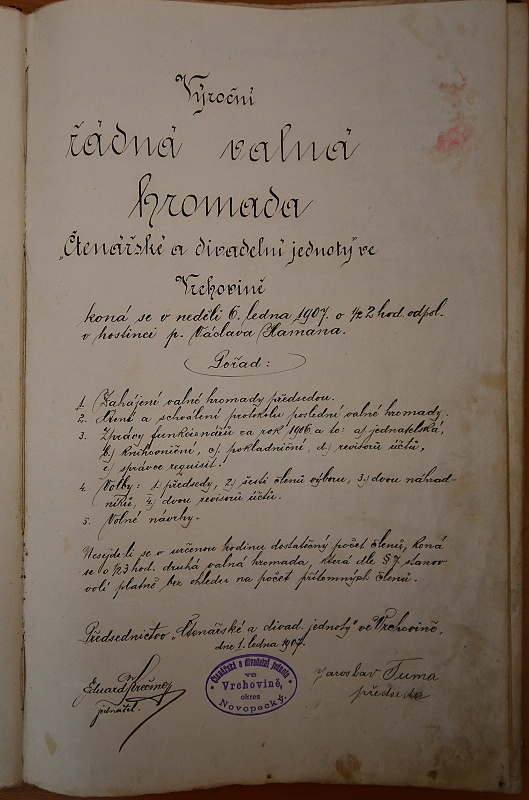 Výroční
řádná valná
hromada
„Čtenářské a divadelní jednoty" ve
Vrchovině
koná se v neděli 6. ledna 1907. o ½2 hod. odpol.
v hostinci p. Václava Hamana.
Pořad:
1. Zahájení valné hromady předsedou.
2. Čtení a schválení protokolu poslední valné hromady.
3. Zprávy funkcionářů za rok 1906. a to: a) jednatelská,
b.) knihovniční, c). pokladniční, d.) revisorů účtů,
e.) správce requisit.
4. Volby: 1.) předsedy, 2.) šesti členů výboru, 3.) dvou náhrad-
níků, 4.) dvou revisorů účtů.
5. Volné návrhy.
Nesejde-li se v určenou hodinu dostatečný počet členů, koná
se o ½3 hod. druhá valná hromada, která dle § 7. stanov
volí platně bez ohledu na počet přítomných členů.
Předsednictvo „Čtenářské a divad. jednoty" ve Vrchovině,
dne 1. ledna 1907.
Eduard
jednatel.
Čtenářská a divadelní jednota
ve
Vrchovině,
okres
Novopacký.
Jaroslav Tuma
předseda